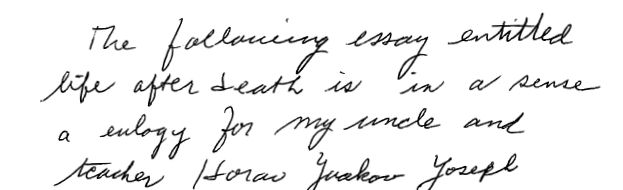 The following essay entitled
life after death is in a sense
a eulogy for my uncle and
teacher Horav Yaakov Yoseph